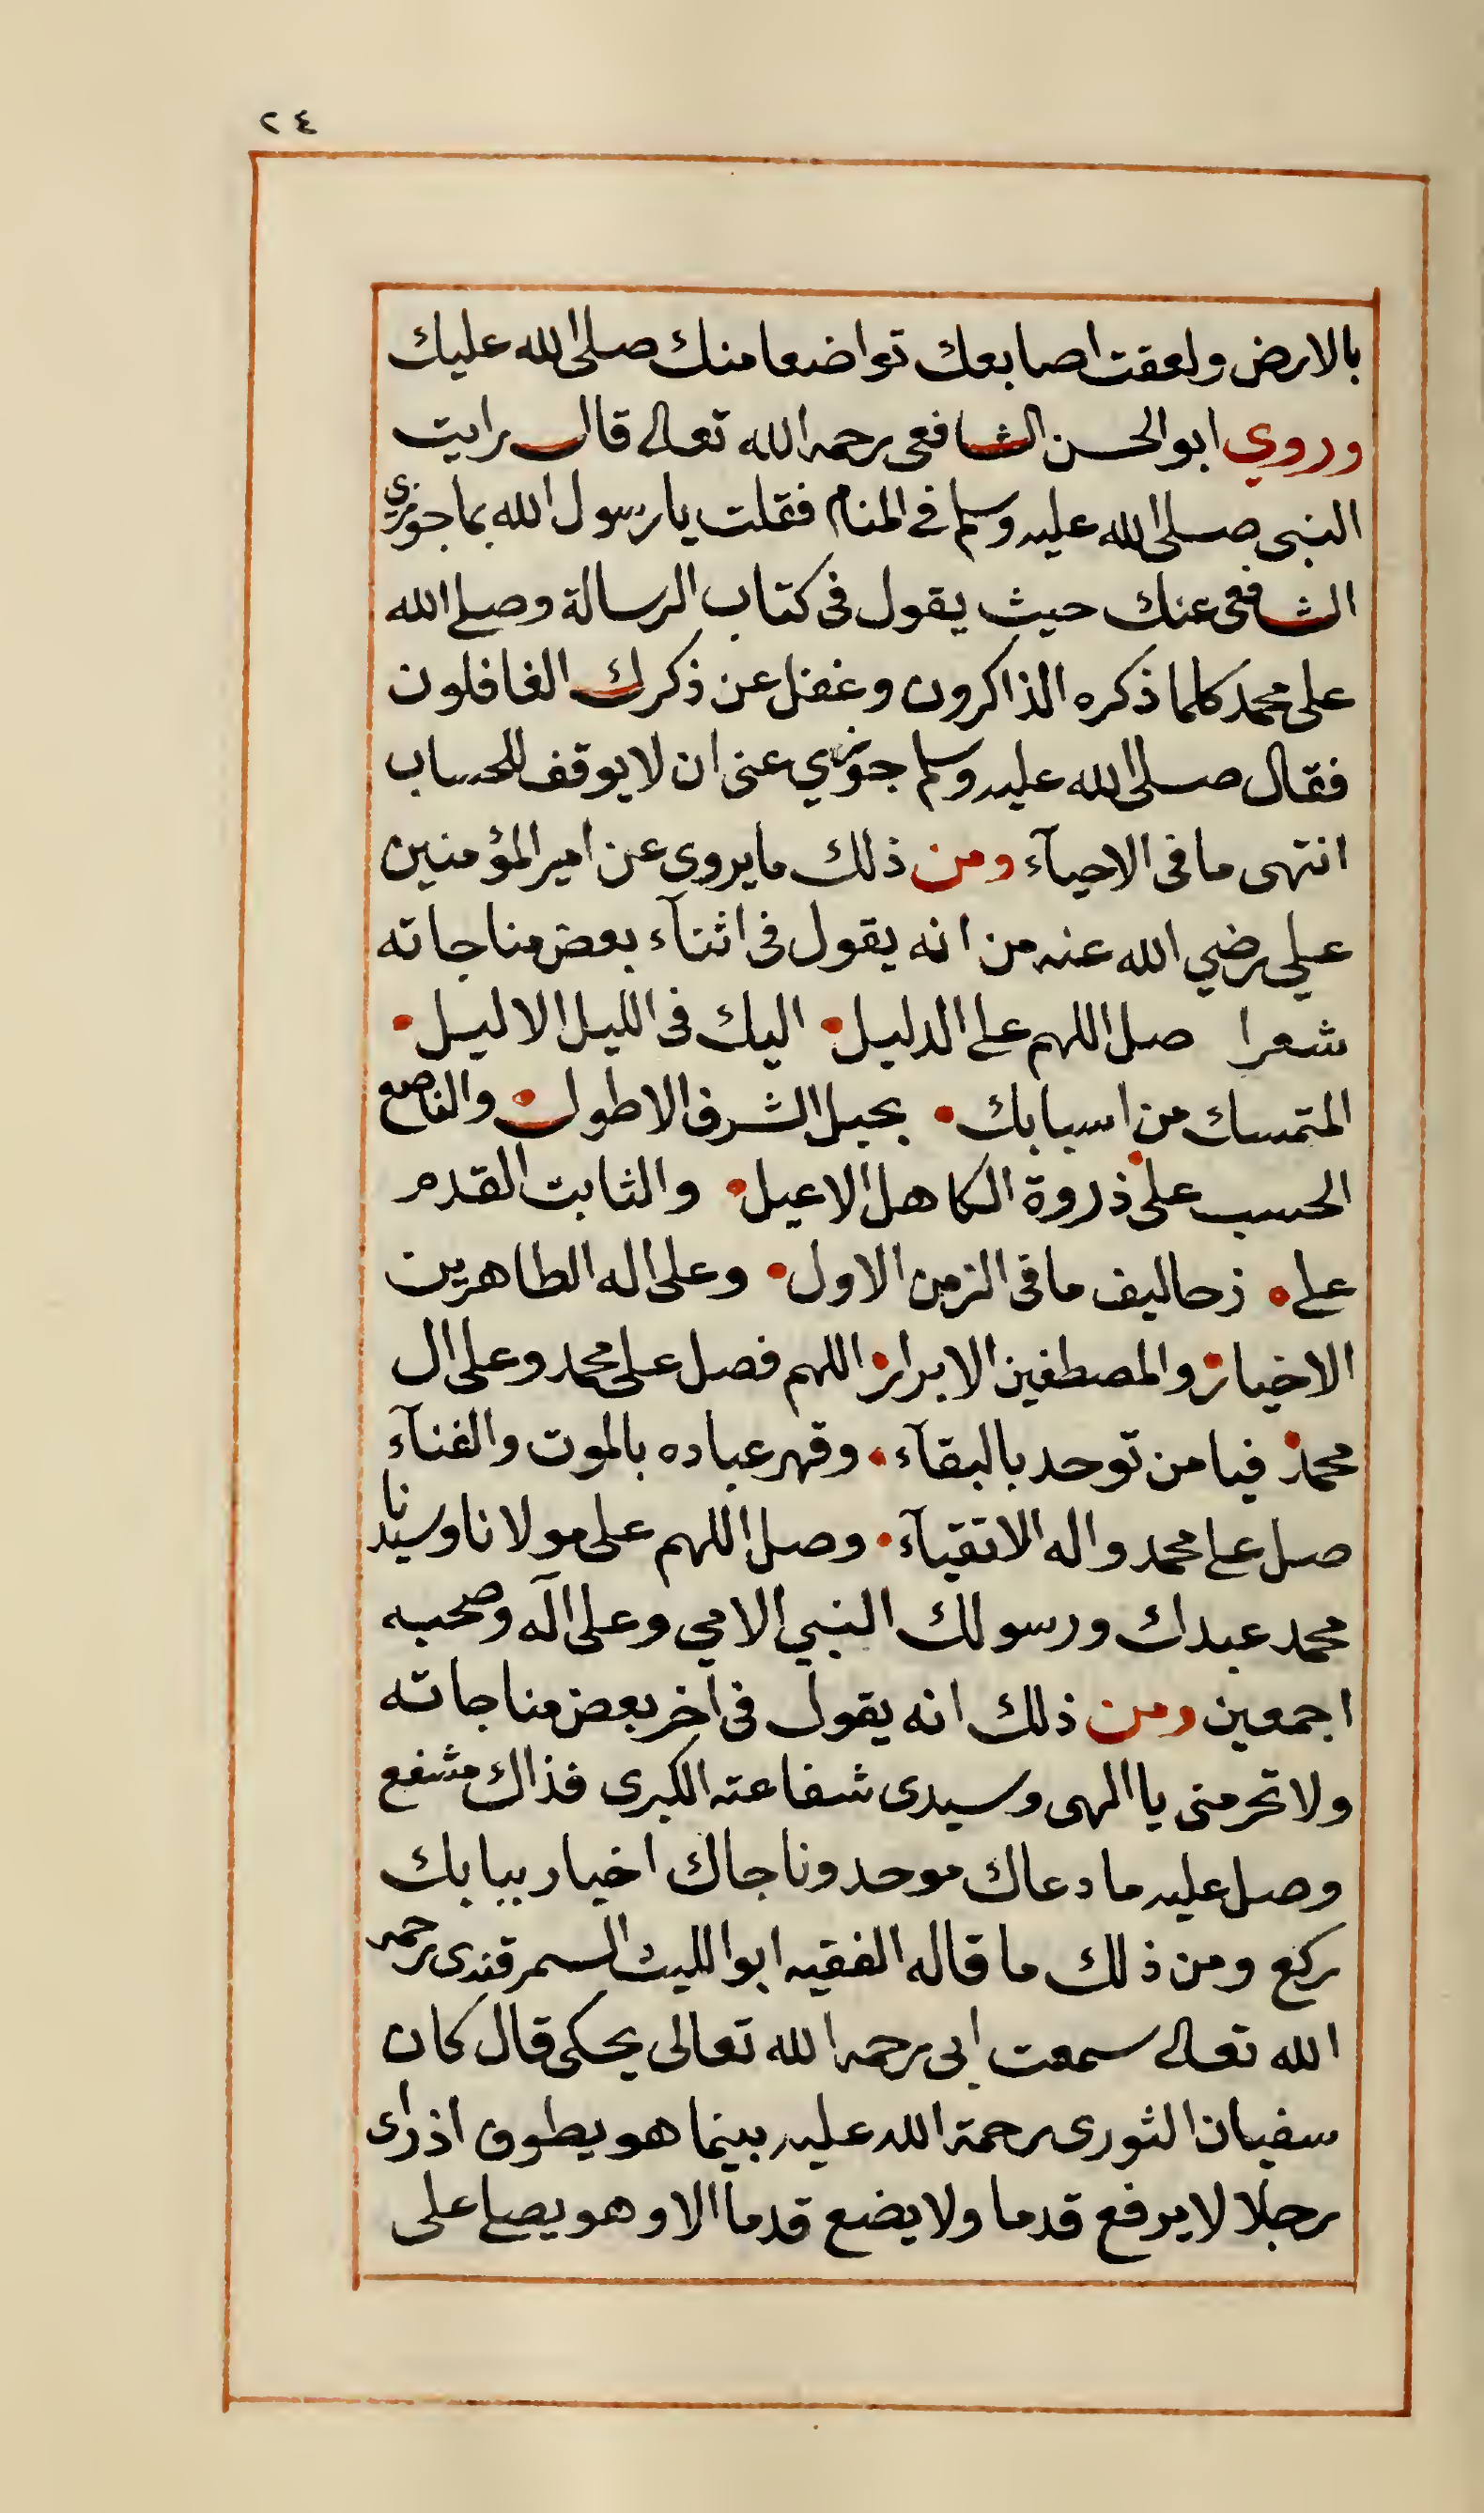 ٢٤
بالارض ولعقت اصابعك تواضعا منك صلى الله عليك
وروي ابو الحسن الشافعى رحمه الله تعالى قال رايت
النبى صلى الله عليه وسلم فى المنام فقلت يا رسول الله بما جوزي
الشافعى عنك حيث يقول فى كتاب الرسالة وصلى الله
على محمد كلما ذكره الذاكرون وغفل عن ذكرك الغافلون
فقال صلى الله عليه وسلم جوزي عنى ان لا يوقف للحساب
انتهى ما فى الاحيآء ومن ذلك ما يروى عن امير المؤمنين
على رضي الله عنه من انه يقول فى اثنآء بعض مناجاته
شعرا صل اللهم على الدليل اليك فى الليل الاليل
المتمسك من اسبابك بحبل الشرف الاطول والناصع
الحسب على ذروة الكاهل الاعبل والثابت القدم
على زحاليف ما فى الزمن الاول وعلى اله الطاهرين
الاخيار والمصطفين الابرار اللهم فصل على محمد وعلى ال
محمد فيا من توحد بالبقآء وقهر عباده بالموت والفنآء
صل على محمد واله الاتقيآء وصل اللهم على مولانا وسيدنا
محمد عبدك ورسولك النبي الامي وعلى آله وصحبه
اجمعين ومن ذلك انه يقول فى آخر بعض مناجاته
ولا تحرمنى يا الهى وسيدى شفاعته الكبرى فذاك مشفع
وصل عليه ما دعاك موحد وناجاك اخيار ببابك
ركع ومن ذلك ما قاله الفقيه ابو الليث السمرقندى رحمه
الله تعالى سمعت ابى رحمه الله تعالى يحكى قال كان
سفيان الثورى رحمة الله عليه بينما هو يطوف اذ راى
رجلا لا يرفع قدما ولا يضع قدما الا وهو يصلى على